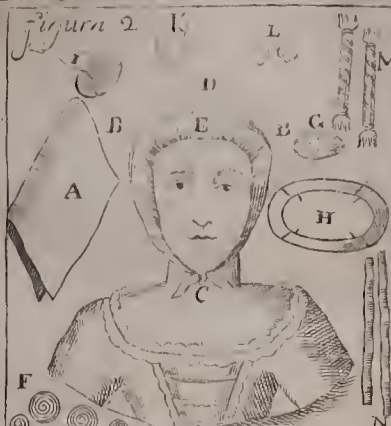 Figura 2 K
L
I M
D
B E B G
A
H
C
F
N